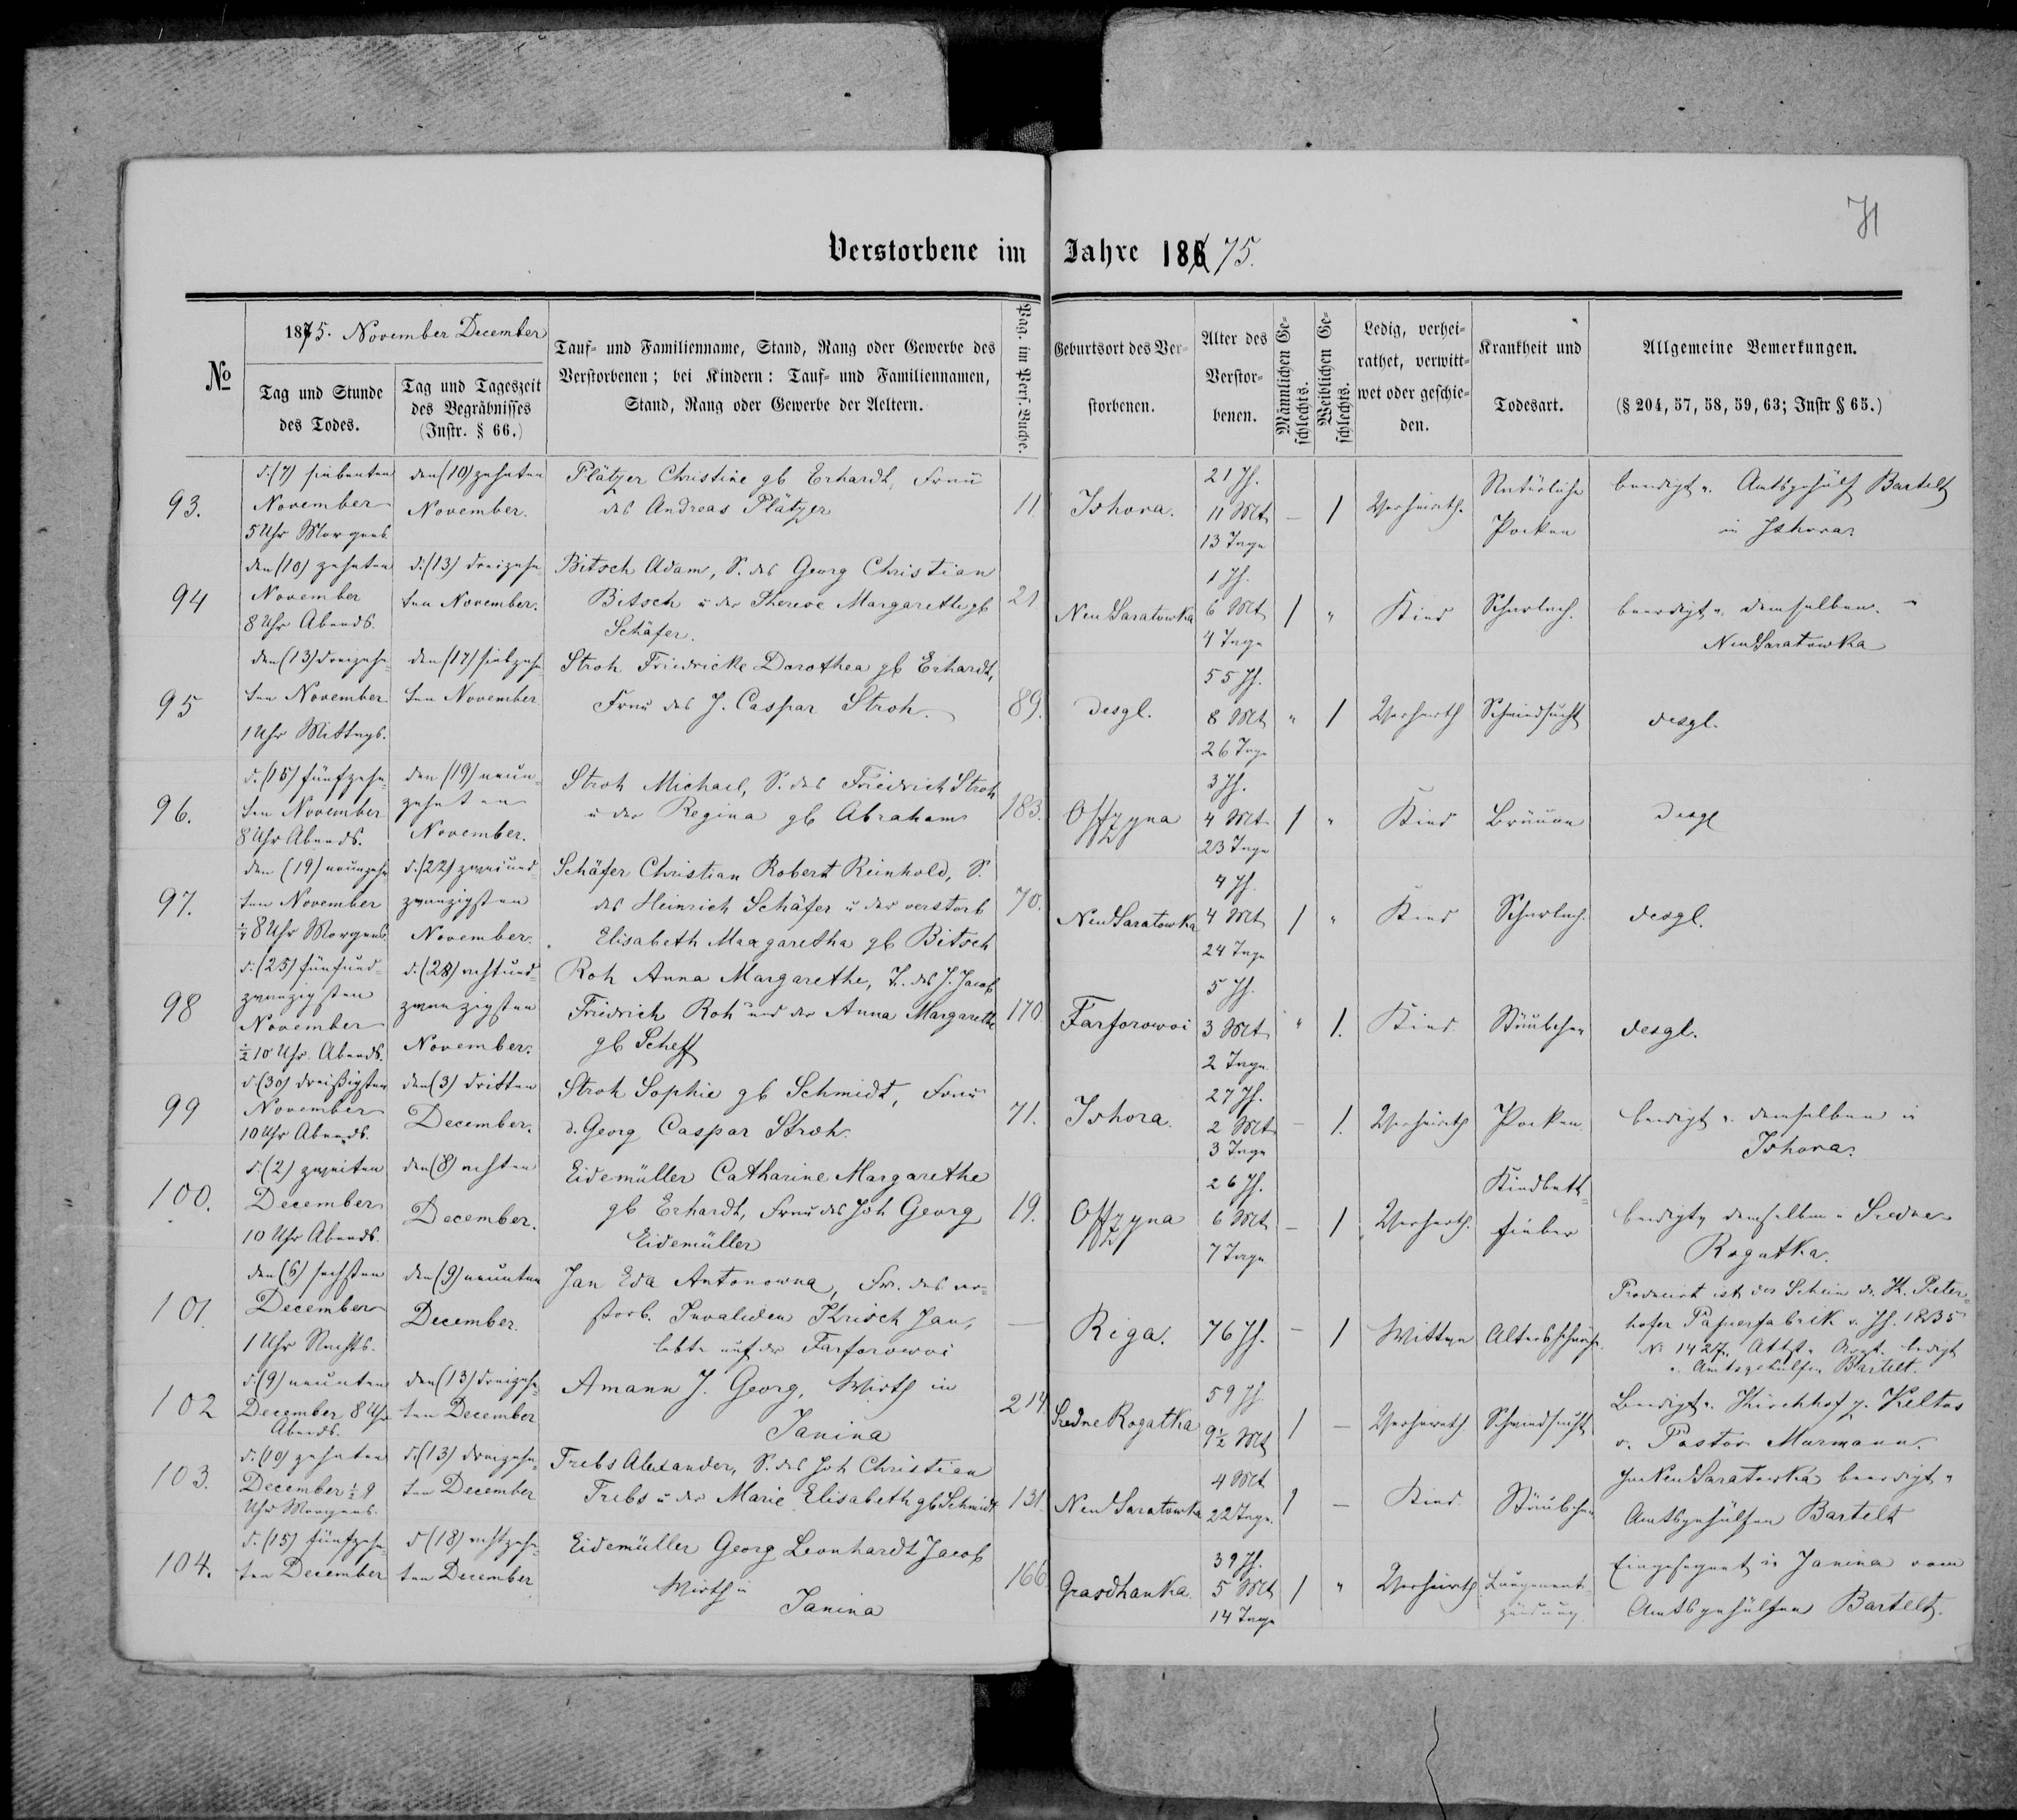 71
Verstorbene im Jahre 186 75.
№
1875. November December
Tag und Stunde des Todes.
Tag und Tageszeit des Begräbnisses (Instr. § 66.)
Tauf- und Familienname, Stand, Rang oder Gewerbe des Verstorbenen; bei Kindern: Tauf- und Familiennamen, Stand, Rang oder Gewerbe der Aeltern.
Pag. im Pers. Buche.
Geburtsort des Verstorbenen.
Alter des Verstorbenen.
Männlichen Geschlechts.
Weiblichen Geschlechts.
Ledig, verheirathet, verwittwet oder geschieden.
Krankheit und Todesart.
Allgemeine Bemerkungen.
(§ 204, 57, 58, 59, 63; Instr § 65.)
93.
d. (7) siebenten
November
5 Uhr Morgens
den (10) zehnten
November.
Plätzer Christine gb Erhardt, Frau
des Andreas Plätzer
11.
Ishora.
21 Jh.
11 Mt
13 Tage
– 1
Verheirath.
Natürliche
Pocken
beerdigt v. Amtsgehülf Bartelt
in Ishora
94
den (10) zehnten
November
8 Uhr Abends.
d. (13) dreizehn-
ten November.
Bitsch Adam, S. des Georg Christian
Bitsch u der Margarethe gb
Schäfer.
21.
Neu Saratowka
1 Jh.
6 Mt
4 Tage
1 "
Kind
Scharlach.
beerdigt v. demselben.
Neu Saratowka
95
den (13) dreizehn-
ten November
1 Uhr Mittags.
den (17) siebzehn-
ten November
Stroh Friedricke Dorothea gb Erhardt,
Frau des J. Caspar Stroh.
89.
desgl.
55 Jh.
8 Mt
26 Tage
" 1
Verheirath
Schwindsucht
desgl.
96.
d. (15) fünfzehn-
ten November
8 Uhr Abends.
den (19) neun-
zehnten
November.
Stroh Michael, S. des Friedrich Stroh
u der Regina gb Abraham
183.
3 Jh.
4 Mt
23 Tage
1 "
Kind
Bräune
desgl
97.
den (19) neunzehn
ten November
8 Uhr Morgens.
d. (22) zweiund-
zwanzigsten
November.
Schäfer Christian Robert Reinhold, S.
des Heinrich Schäfer u der verstorb
Elisabeth Margaretha gb Bitsch
70.
Neu Saratowka
4 Jh.
4 Mt
24 Tage
1 "
Kind
Scharlach.
desgl.
98
d. (25) fünfund-
zwanzigsten
November
½ 10 Uhr Abends.
d. (28) achtund-
zwanzigsten
November.
Roh Anna Margarethe, T. des J. Jacob
Friedrich Roh und der Anna Margarethe
gb Scheff
170.
Farforowoi
5 Jh.
3 Mt
2 Tage
" 1.
Kind
desgl.
99
d (30) dreißigsten
November
10 Uhr Abends.
den (3) dritten
December.
Stroh Sophie gb Schmidt, Frau
d. Georg Caspar Stroh.
71.
Ishora.
27 Jh.
2 Mt
3 Tage
– 1.
Verheirath
Pocken
beerdigt v. demselben in
Ishora.
100.
d. (2) zweiten
December
10 Uhr Abends.
den (8) achten
December.
Eidemüller Catharine Margarethe
gb Erhardt, Frau des Joh Georg
Eidemüller
19.
26 Jh.
6 Mt
7 Tage
– 1
Verheirath.
Kindbett-
fieber
beerdigt v demselben Sredne
Rogatka.
101
den (6) sechsten
December
1 Uhr Nachts.
den (9) neunten
December.
Jan Eda Antonowna, Fr. des ver-
storb. Invaliden Krisch Jan,
lebte auf der Farforowoi
–
Riga.
76 Jh.
– 1
Wittwe
Altersschwäche
Producirt ist der Schein d. K. Peter-
hofer Papierfabrik v. Jh. 1835
№ 1427. beerdigt
v. Amtsgehülfen Bartelt.
102
d. (9) neunten
December 8 Uhr
Abends.
den (13) dreizehn-
ten December
Amann J. Georg, Wirth in
Janina
214
Sredne Rogatka
59 Jh.
9½ Mt
1 –
Verheirath
Schwindsucht
Beerdigt v. Kirchhof z. Keltos
v. Pastor Murmann.
103.
d. (10) zehnten
December ½ 9
Uhr Morgens.
d. (13) dreizehn-
ten December
Trebs Alexander, S. des Joh Christian
Trebs u der Marie Elisabeth gb Schmidt
131.
Neu Saratowka
4 Mt
22 Tage.
1 –
Kind
In Neu Saratowka beerdigt v
Amtsgehülfen Bartelt
104.
d. (15) fünfzehn-
ten December
d (18) achtzehn-
ten December
Eidemüller Georg Leonhardt Jacob
Wirth in
Janina
166.
Grasdhanka.
39 Jh.
5 Mt
14 Tage
1 "
Verheirath
Lungenent-
zündung
Eingesegnet in Janina vom
Amtsgehülfen Bartelt.